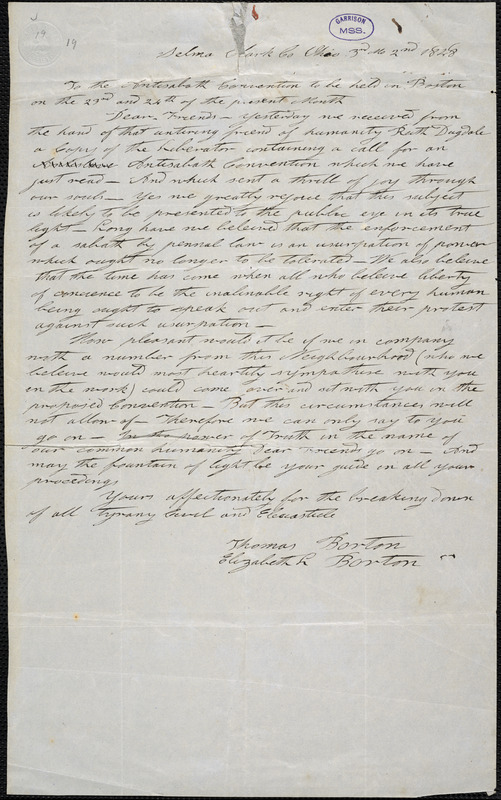 19
19
GARRISON
MSS.
Selma Clark Co Ohio 3rd Mo 2nd 1828
To the Antisabath Convention to be held in Boston
on the 23rd and 24th of the present Month
Dear Friends — Yesterday we received from
the hand of that untiring friend of humanity Ruth Dugdale
a Copy of the Liberator containing a call for an
Antisabath Convention which we have
just read — And which sent a thrill of joy through
our souls — Yes we greatly rejoice that this subject
is likely to be presented to the public eye in its true
light — Long have we beleived that the enforcement
of a sabath by pennal law is an usurpation of power
which ought no longer to be tolerated — We also beleive
that the time has come when all who beleive liberty
of concience to be the inalinable right of every human
being ought to speak out and enter their protest
against such usurpation —
How pleasant would it be if we in company
with a number from this Neighbourhood (who we
beleive would most heartily sympathise with you
in the work) could come over and sit with you in the
proposed Convention — But this circumstances will
not allow of — Therefore we can only say to you
go on — In the power of Truth in the name of
our common humanity Dear Friends go on — And
may the fountain of light be your guide in all your
proceedings
Yours affectionately for the breaking down
of all tyrany Civil and Eleciasticle
Thomas Borton
Elizabeth R Borton